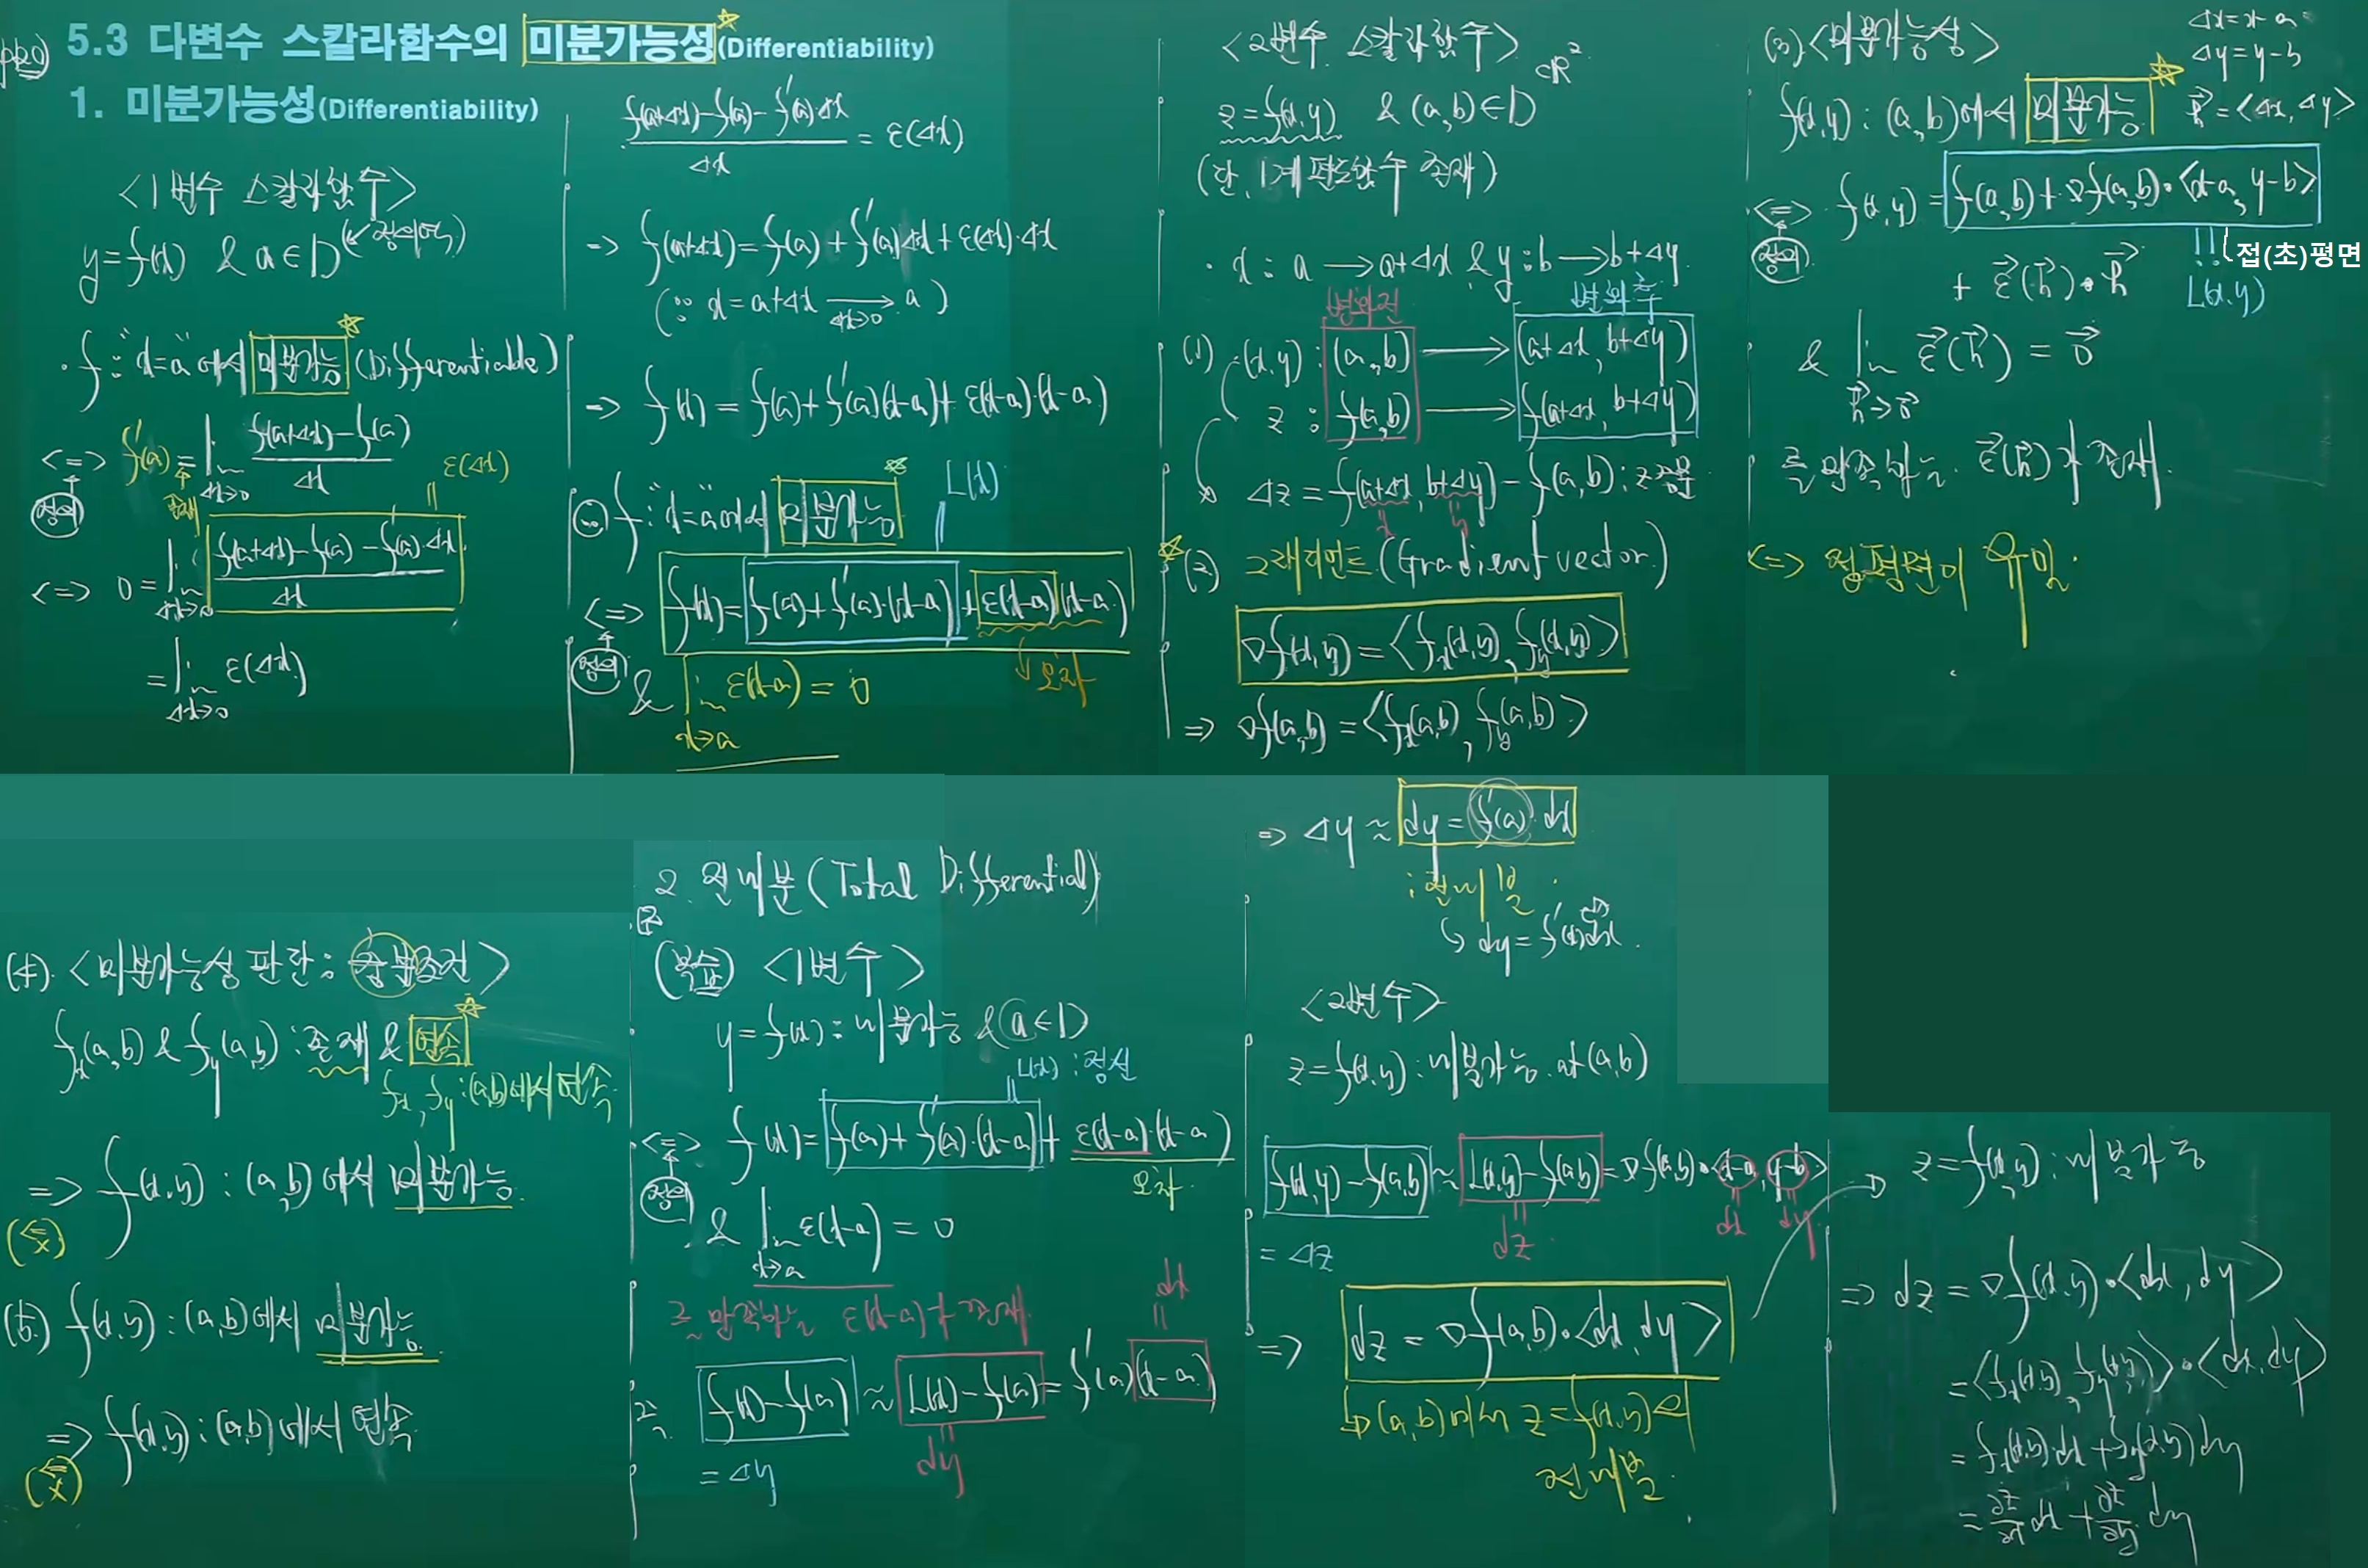 p20)
5.3 다변수 스칼라함수의 미분가능성(Differentiability)
1. 미분가능성(Differentiability)
<1변수 스칼라함수>
y=f(x) & a∈D (정의역)
· f : "x=a"에서 미분가능 (Differentiable)
<=> f'(a) = lim Δx→0 (f(a+Δx)-f(a))/Δx
정의
존재
ε(Δx)
<=> 0 = lim Δx→0 (f(a+Δx)-f(a)-f'(a)·Δx)/Δx
= lim Δx→0 ε(Δx)
(f(a+Δx)-f(a)-f'(a)·Δx)/Δx = ε(Δx)
=> f(a+Δx) = f(a)+f'(a)Δx+ε(Δx)·Δx
(∵ x=a+Δx → a) Δx→0
=> f(x) = f(a)+f'(a)(x-a)+ε(x-a)·(x-a)
∴ f : "x=a"에서 미분가능
L(x)
<=> f(x)=f(a)+f'(a)·(x-a)+ε(x-a)(x-a)
정의
오차
& lim x→a ε(x-a) = 0
<2변수 스칼라함수>
z=f(x,y) & (a,b)∈D ⊂R²
(단, 1계 편도함수 존재)
· x : a → a+Δx & y : b → b+Δy
변화전 변화후
(1) (x,y) : (a,b) → (a+Δx, b+Δy)
z : f(a,b) → f(a+Δx, b+Δy)
Δz = f(a+Δx, b+Δy) - f(a,b) : z증분
x y
(2) 그래디언트 (Gradient vector)
∇f(x,y) = <f_x(x,y), f_y(x,y)>
=> ∇f(a,b) = <f_x(a,b), f_y(a,b)>
(3) <미분가능성>
Δx=x-a
Δy=y-b
h⃗ = <Δx, Δy>
f(x,y) : (a,b)에서 미분가능
<=> f(x,y) = f(a,b)+∇f(a,b)·<x-a, y-b>
정의
접(초)평면
+ ε⃗(h⃗)·h⃗
L(x,y)
& lim h⃗→0⃗ ε⃗(h⃗) = 0⃗
를 만족하는 ε⃗(h⃗)가 존재.
<=> 접평면이 유일.
(4) <미분가능성 판단 : 충분조건>
f_x(a,b) & f_y(a,b) : 존재 & 연속
f_x, f_y : (a,b)에서 연속
=> f(x,y) : (a,b)에서 미분가능
(<= x)
(5) f(x,y) : (a,b)에서 미분가능
=> f(x,y) : (a,b)에서 연속
(<= x)
2. 전미분 (Total Differential)
(복습) <1변수>
y=f(x) : 미분가능 & a∈D
L(x) : 접선
<=> f(x)=f(a)+f'(a)·(x-a)+ε(x-a)·(x-a)
정의
오차
& lim x→a ε(x-a) = 0
를 만족하는 ε(x-a)가 존재.
dx
즉 f(x)-f(a) ≈ L(x)-f(a) = f'(a)(x-a)
= Δy
dy
=> Δy ≈ dy = f'(a)·dx
: 전미분
dy = f'(x)dx
<2변수>
z=f(x,y) : 미분가능 at (a,b)
f(x,y)-f(a,b) ≈ L(x,y)-f(a,b) = ∇f(a,b)·<x-a, y-b>
= Δz
dz
dx dy
=> dz = ∇f(a,b)·<dx, dy>
(a,b)에서 z=f(x,y)의
전미분
z=f(x,y) : 미분가능
=> dz = ∇f(x,y)·<dx, dy>
= <f_x(x,y), f_y(x,y)>·<dx, dy>
= f_x(x,y)dx+f_y(x,y)dy
= ∂z/∂x dx + ∂z/∂y dy